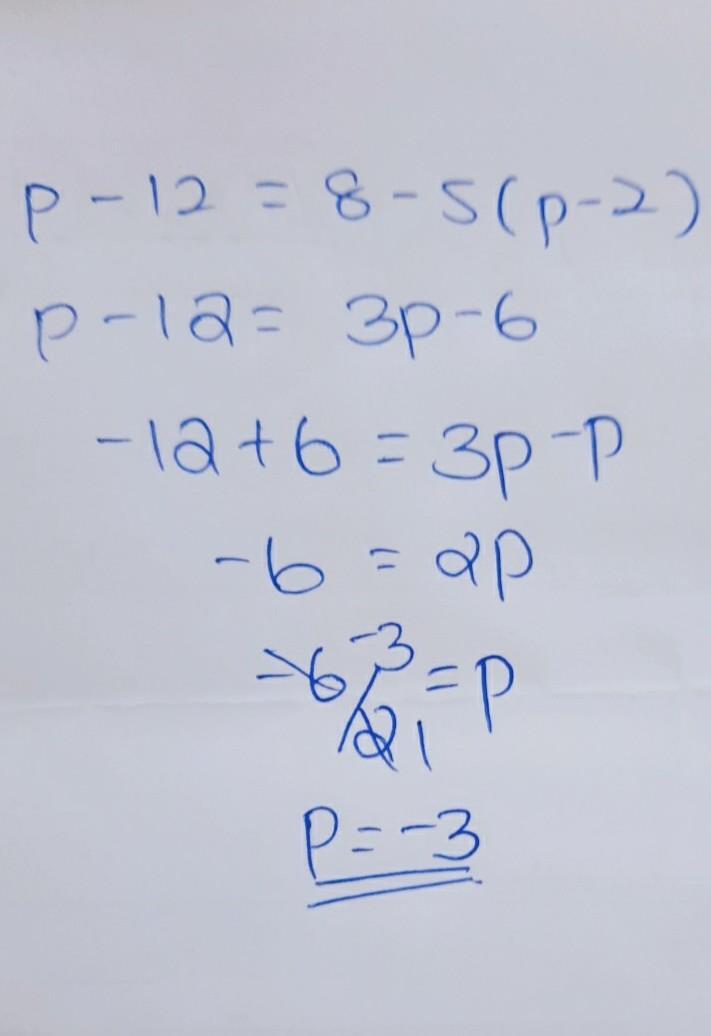 p - 12 = 8 - 5(p-2)
p - 12 = 3p - 6
-12 + 6 = 3p - p
-6 = 2p
-6 -3 / 2 1 = p
p = -3